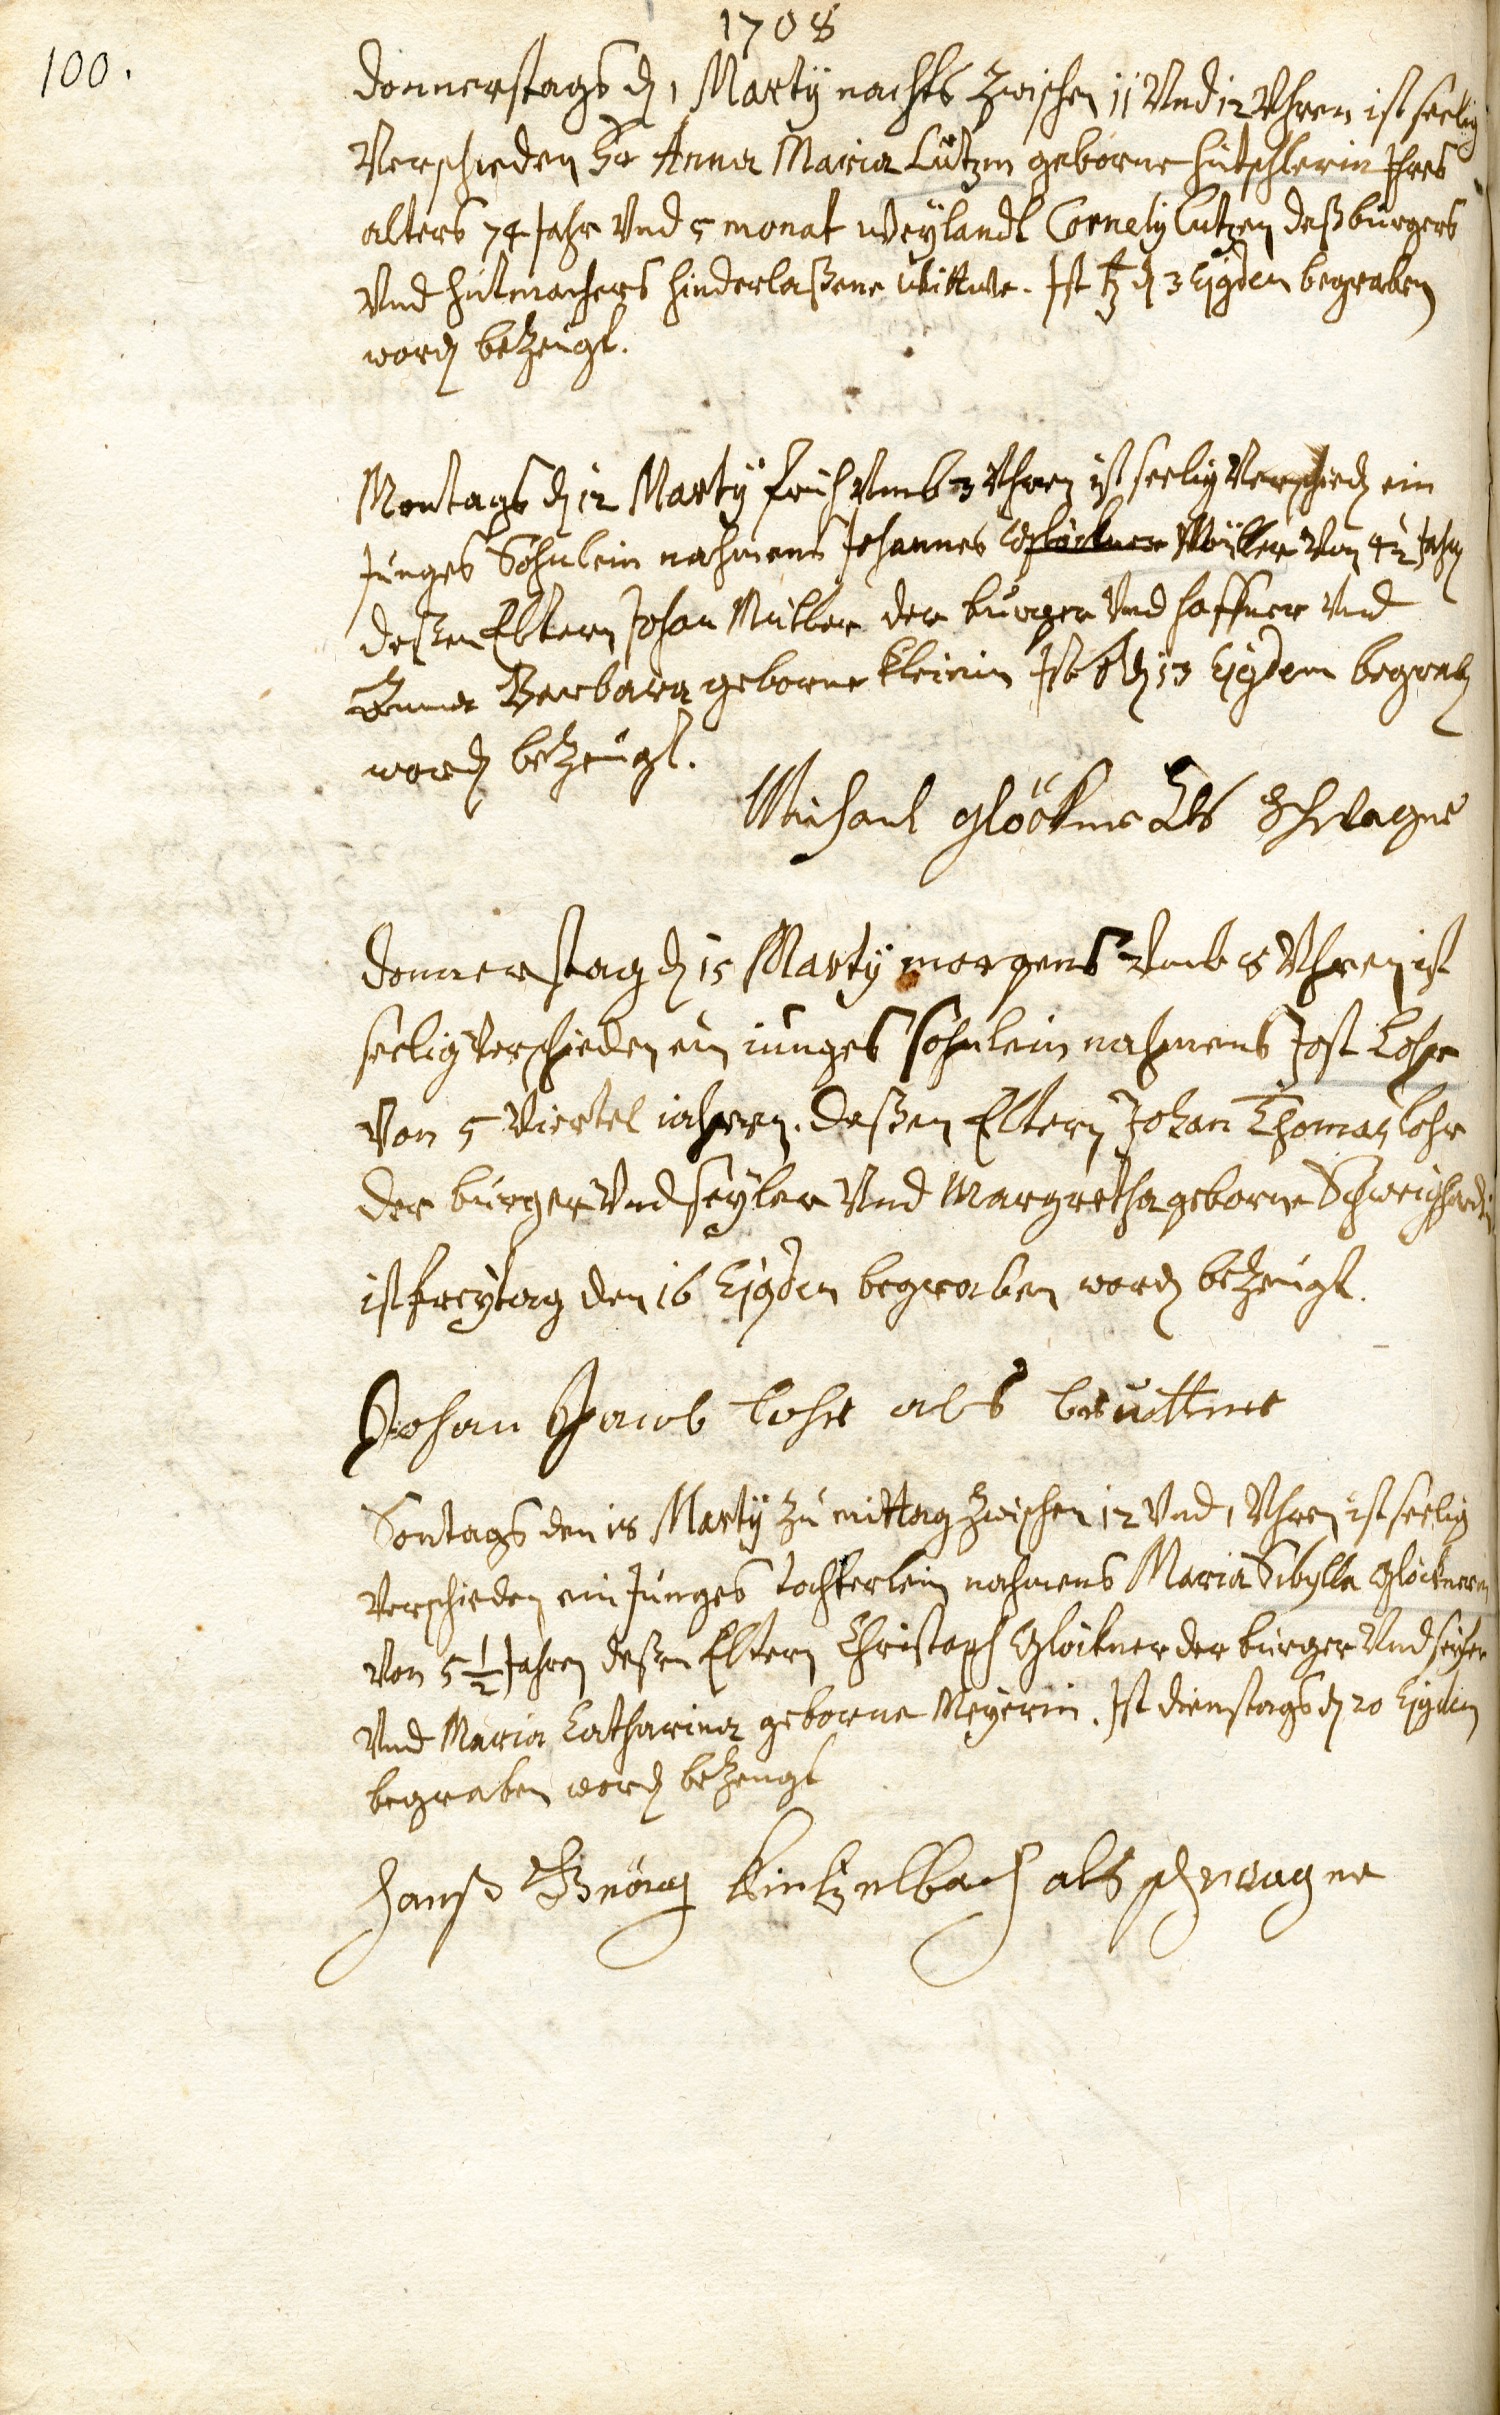 1708
100.
donnerstags d 1 Marty nachts zwischen 11 Vnd 12 Vhren ist seelig
Verschieden Fr Anna Maria Lützin geborne Hutschlerin Ihres
alters 74 Jahr Vnd 5 monat weylandt Cornely Lutzen deß burgers
Vnd hutmachers hinderlaßene wittwe. Ist ♄ d 3 Ejgdem begraben
word bezeugt.
Montags d 12 Marty früh Vmb 3 Vhren ist seelig Verschied ein
Junges Söhnlein nahmens Johannes Glöckner Müller Von 4½ Jahr
deßen Eltern Johan Müller der burger Vnd haffner Vnd
Anna Barbara geborne Kleinin Ist d 13 Ejgdem begrab
word bezeugt.
Michael glöckner Als Schwager
donnerstag d 15 Marty morgens Vmb 8 Vhren ist
seelig Verschieden ein junges söhnlein nahmens Jost Lohr
Von 5 Viertel jahren. deßen Eltern Johan Thomas Lohr
der burger Vnd seyler Vnd Margretha geborne Schweighardin
ist freytag den 16 Ejgdem begraben word bezeugt.
Johan Jacob Lohr als
Sontags den 18 Marty zu mittag zwischen 12 Vnd 1 Vhren ist seelig
Verschieden ein Junges tochterlein nahmens Maria Sibylla Glöcknerin
Von 5 1/2 Jahren deßen Eltern Christoph Glöckner der burger Vnd
Vnd Maria Catharina geborne Meyerin. Ist dienstags d 20 Ejgdem
begraben word bezeugt
Hanß Geörg Kintzelbach als schwager